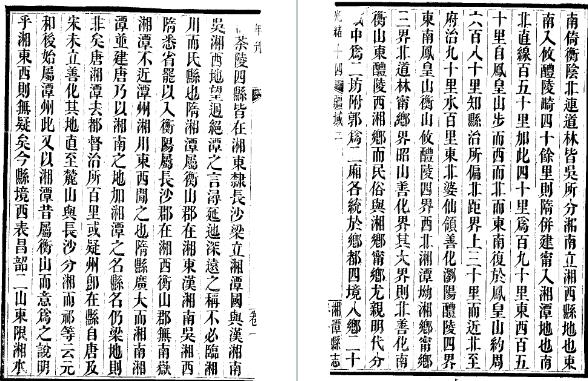 南倚衡陰北連道林皆吳所分湘南立湘西縣地也東
南入攸醴陵畸四十餘里則隋併建甯入湘潭地也南
北直線百五十里加此四十里爲百九十里東西百五
十里自鳳皇山步而西而北而東南復於鳳皇山約周
六百八十里知縣治所偏北距界上三十里而近北至
府治九十里水百里東北婆仙領善化瀏陽醴陵四界
東南鳳皇山衡山攸醴陵四界西北湘潭坳湘鄉甯鄉
三界北道林甯鄉界昭山善化界其大界則北善化南
衡山東醴陵西湘鄉而民俗與湘鄉甯鄉尤親明代分
城中爲二坊附郭爲二廂各統於鄉都四境入鄉二十
湘潭縣志
茶陵四縣皆在湘東隸長沙梁立湘潭國與漢湘南
吳湘西地望迥絕潭之言潯延迤深遠之稱不必臨湘
川而氏縣也隋湘潭屬衡山郡在湘東漢湘南吳湘西
隋悉省罷以入衡陽屬長沙郡在湘西衡山郡無南嶽
湘潭不近潭州湘川東西闢之也隋縣廣大而湘南湘
潭並建唐乃以湘南之地加湘潭之名縣名仍梁地則
非矣唐湘潭去都督治所百里或疑州卽在縣自唐及
宋未立善化其地直至麓山與長沙分湘而祁等云元
和後始屬潭州此又以湘潭昔屬衡山而意爲之說明
乎湘東西則無疑矣今縣境西表昌韶二山東限湘水